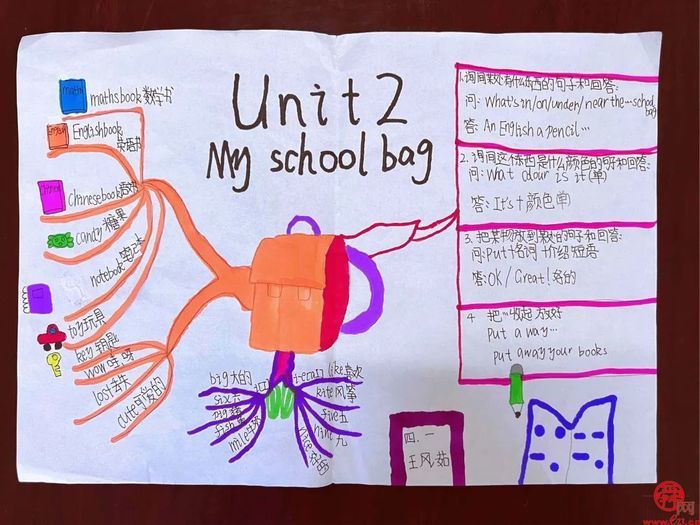 Unit 2
My school bag
maths
mathsbook 数学书
English
Englishbook
英语书
chinesebook 语文书
candy 糖果
notebook 笔记本
toy 玩具
key 钥匙
wow 哇,呀
lost 丢失
cute 可爱的
big 大的
six 六
pig 猪
fish 鱼
like 喜欢
kite 风筝
five 五
nine 九
nice
1.询问某处有什么东西的句子和回答:
问: What's in/on/under/near the…school
bag
答: An English a pencil…
2.询问这个东西是什么颜色的句和回答:
问: What colour is it(单)
答: It's+颜色单
3.把某物放到某处的句子和回答:
问: Put+名词+介绍短语
答: OK/Great!好的
4 把…收起 放好
Put a way…
put away your books
四.一
王风茹